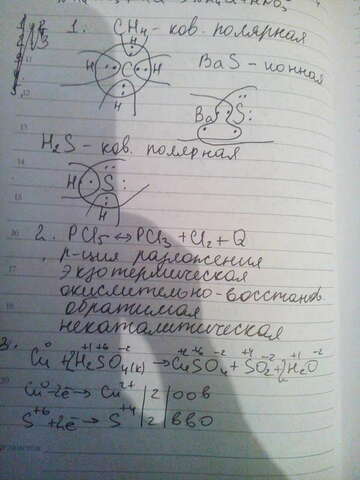 1. CH₄ - ков. полярная
H
H C H
H
BaS - ионная
Ba S
H₂S - ков. полярная
H S
H
2. PCl₅ ↔ PCl₃ + Cl₂ + Q
р-ция разложения
экзотермическая
окислительно-восстанов.
обратимая
некаталитическая
3. Cu⁰ + 2H₂⁺¹S⁺⁶O₄⁻²(к) → Cu⁺²S⁺⁶O₄⁻² + S⁺⁴O₂⁻² + 2H₂⁺¹O⁻²
Cu⁰ - 2e → Cu²⁺ | 2 | оов
S⁺⁶ + 2e → S⁺⁴ | 2 | вво